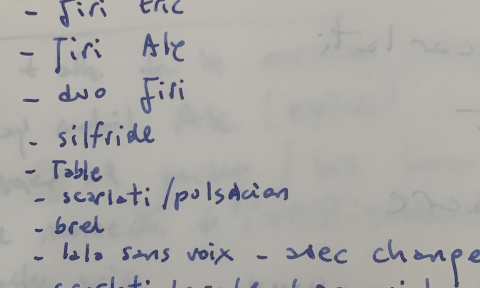 - Jiri Eric
- Jiri Ale
- duo Jiri
- silfride
- Table
- scarlati /
- brel
- lalo sans voix - avec change
scarlati